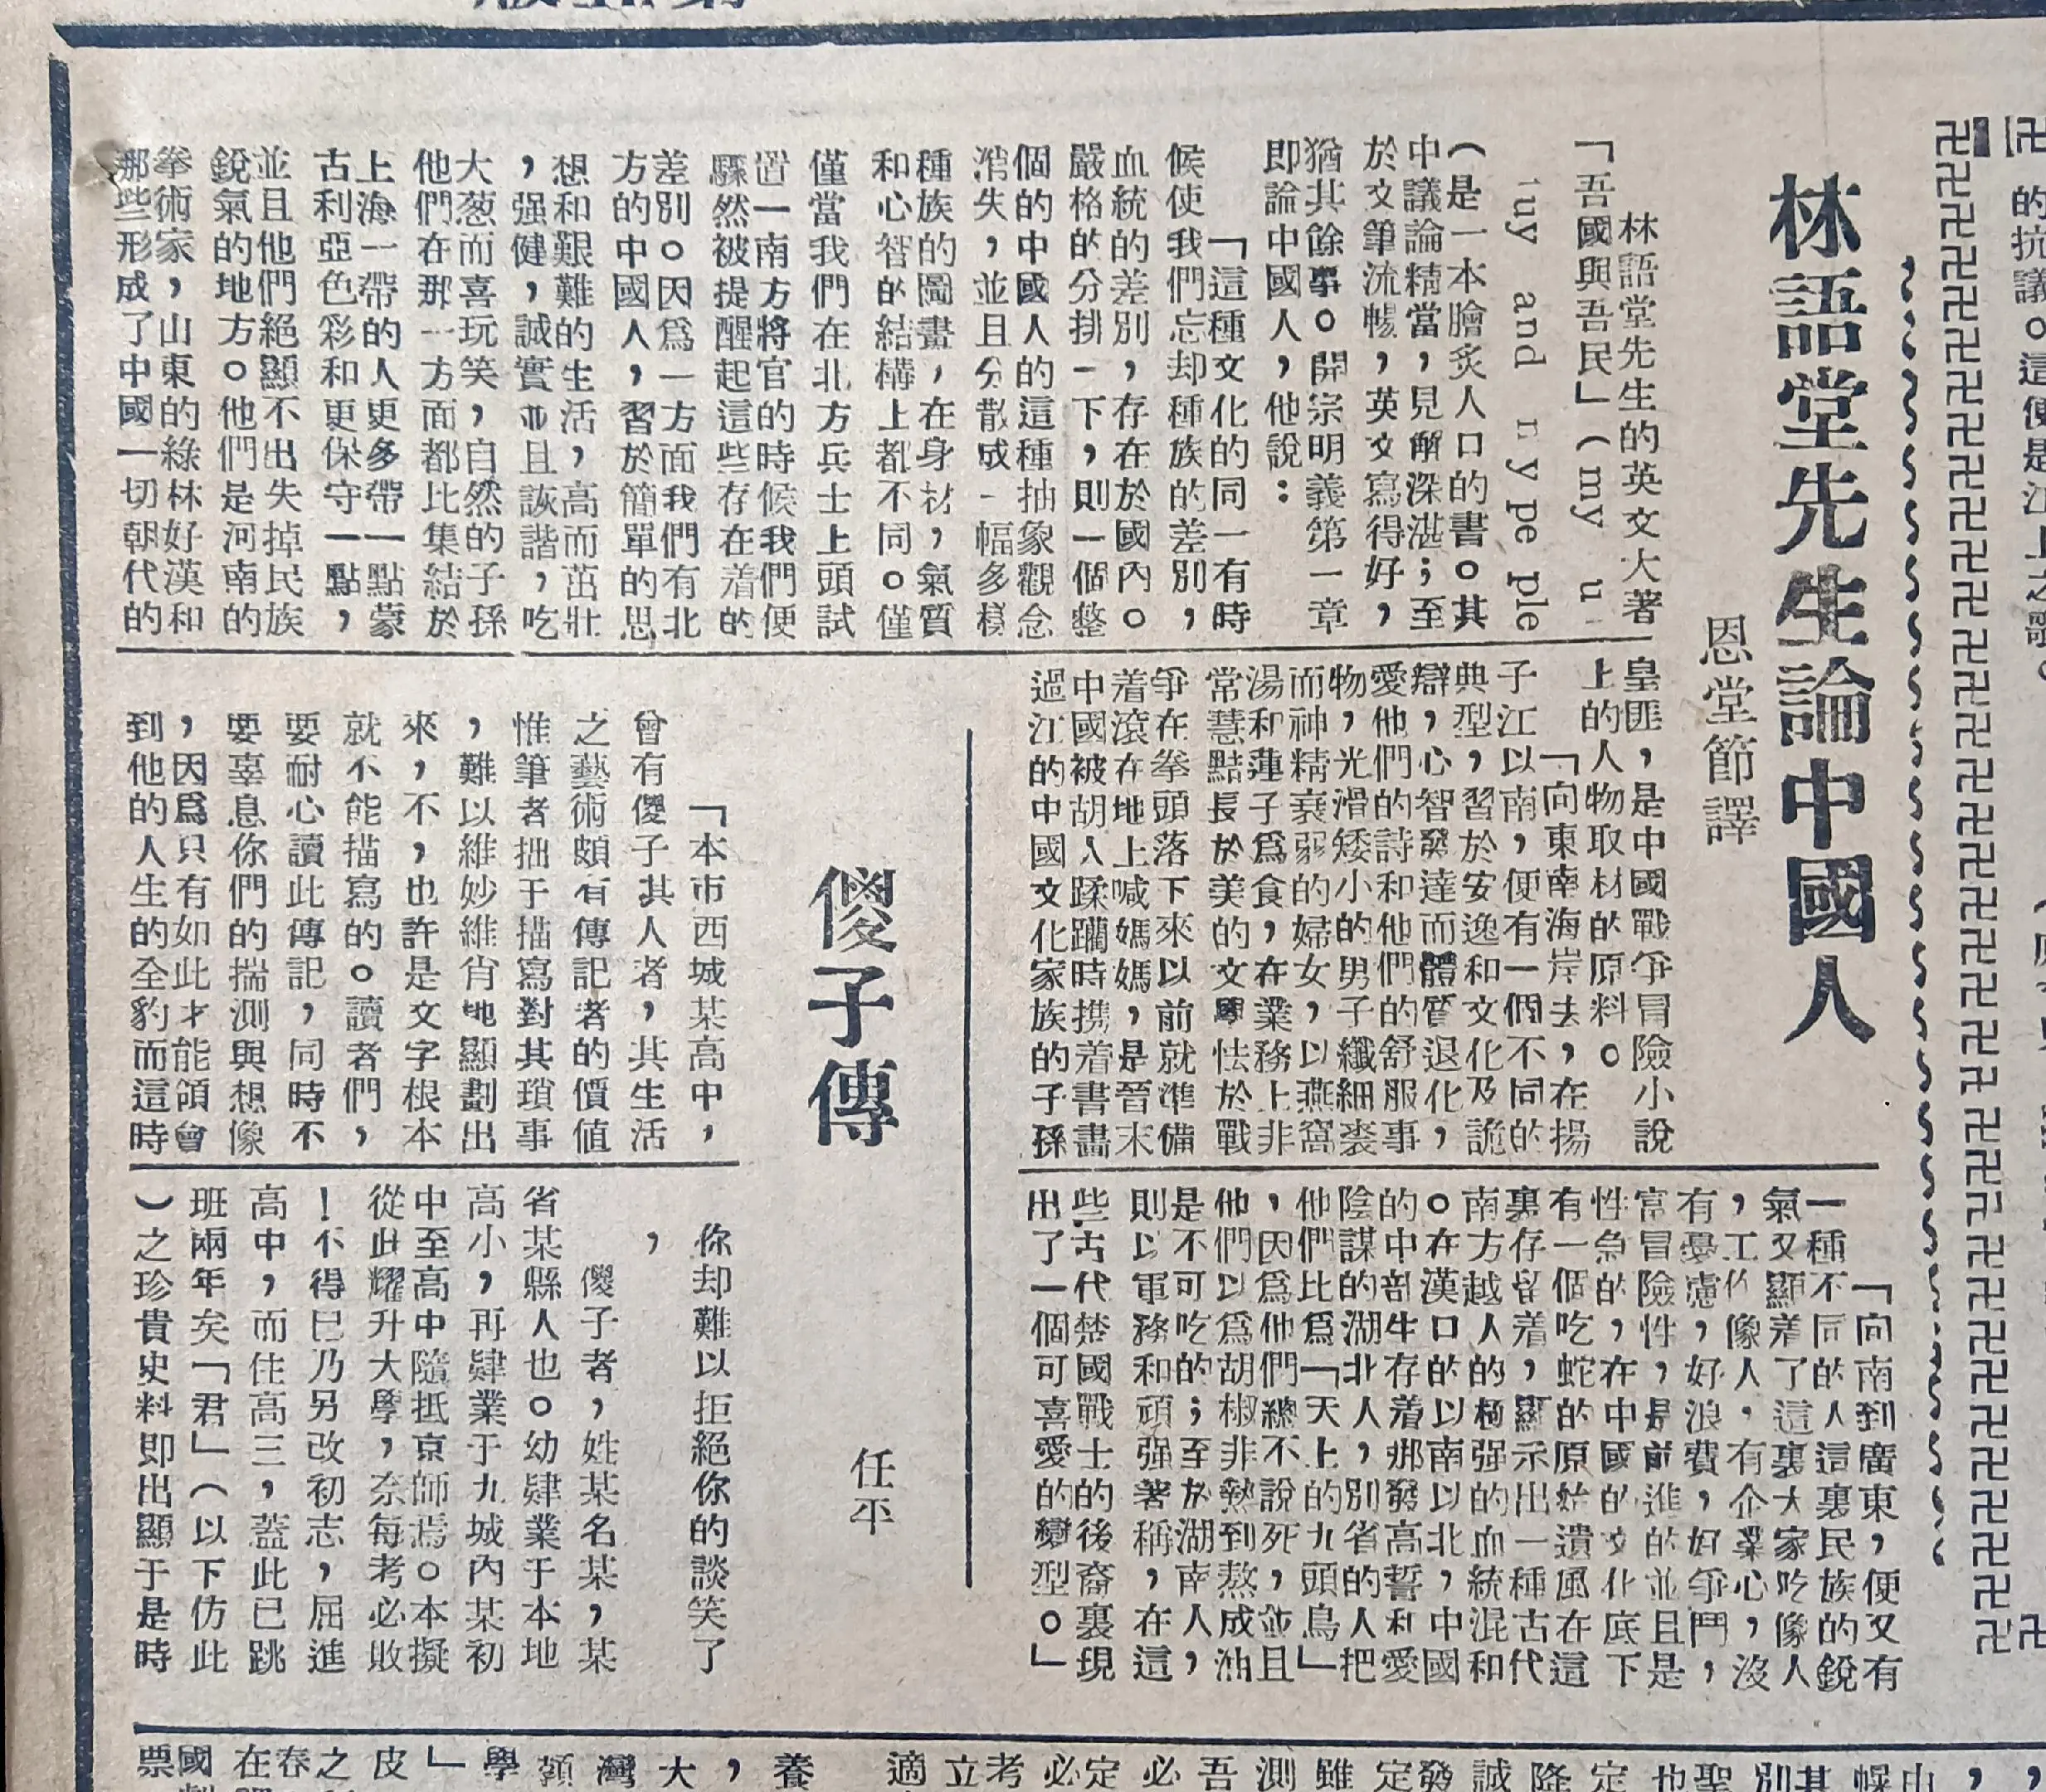 林語堂先生論中國人
恩堂節譯
林語堂先生的英文大著
「吾國與吾民」(my
and
ple
(是一本膾炙人口的書。其
中議論精當,見解深湛;至
於文筆流暢,英文寫得好,
猶其餘事。開宗明義第一章
即論中國人,他說:
「這種文化的同一有時
候使我們忘却種族的差別,
血統的差別,存在於國內。
嚴格的分排一下,則一個整
個的中國人的這種抽象觀念
消失,並且分散成一幅多樣
種族的圖畫,在身材,氣質
和心智的結構上都不同。僅
僅當我們在北方兵士上頭試
置一南方將官的時候我們便
驟然被提醒起這些存在着的
差別。因爲一方面我們有北
方的中國人,習於簡單的思
想和艱難的生活,高而茁壯
,强健,誠實並且詼諧,吃
大葱而喜玩笑,自然的子孫
他們在那一方面都比集結於
上海一帶的人更多帶一點蒙
古利亞色彩和更保守一點,
並且他們絕顯不出失掉民族
銳氣的地方。他們是河南的
拳術家,山東的綠林好漢和
那些形成了中國一切朝代的
皇匪,是中國戰爭冒險小說
上的人物取材的原料。
「向東南海岸去,在揚
子江以南,便有一個不同的
典型,習於安逸和文化及詭
辯,心智發達而體質退化,
愛他們的詩和他們的舒服事
物,光滑矮小的男子纖細裘
而神精衰弱的婦女,以燕窩
湯和蓮子爲食,在業務上非
常慧黠長於美的文學怯於戰
爭在拳頭落下來以前就準備
着滾在地上喊媽媽,是晉末
中國被胡人蹂躪時携着書畫
過江的中國文化家族的子孫
「向南到廣東,便又有
一種不同的人這裏民族的銳
氣又顯着了這裏大家吃像人
,工作像人,有企業心,沒
有憂慮,好浪費,好爭鬥,
常冒險性,是前進的並且是
性急的,在中國的文化底下
有一個吃蛇的原始遺風在這
裏存留着,顯示出一種古代
南方越人的極强的血統混和
。在漢口的以南以北,中國
的中部生存着那發高誓和愛
陰謀的湖北人,別省的人把
他們比爲「天上的九頭鳥」
,因爲他們總不說死,並且
他們以爲胡椒非熱到熬成油
是不可吃的;至於湖南人,
則以軍務和頑强著稱,在這
些古代楚國戰士的後裔裏現
出了一個可喜愛的變型。」
傻子傳
任平
「本市西城某高中,
曾有傻子其人者,其生活
之藝術頗有傳記者的價值
惟筆者拙于描寫對其瑣事
,難以維妙維肖地顯劃出
來,不,也許是文字根本
就不能描寫的。讀者們,
要耐心讀此傳記,同時不
要辜息你們的揣測與想像
,因爲只有如此才能領會
到他的人生的全豹而這時
你却難以拒絕你的談笑了
,
傻子者,姓某名某,某
省某縣人也。幼肄業于本地
高小,再肄業于九城內某初
中至高中隨抵京師焉。本擬
從此耀升大學,奈每考必敗
!不得已乃另改初志,屈進
高中,而住高三,蓋此已跳
班兩年矣「君」(以下仿此
)之珍貴史料即出顯于是時
的抗議。這便是江上之歌。